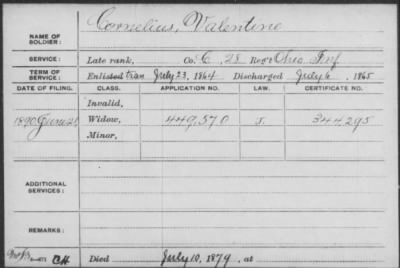 Cornelius, Valentine
NAME OF SOLDIER:
SERVICE: Late rank, Co. C, 28 Reg't Ohio Inf
TERM OF SERVICE: Enlisted July 23, 1864 Discharged July 6, 1865
DATE OF FILING. CLASS. APPLICATION NO. LAW. CERTIFICATE NO.
Invalid,
1890 June Widow, 449,570 J. 344295
Minor,
ADDITIONAL SERVICES:
REMARKS:
Died July 10, 1879, at